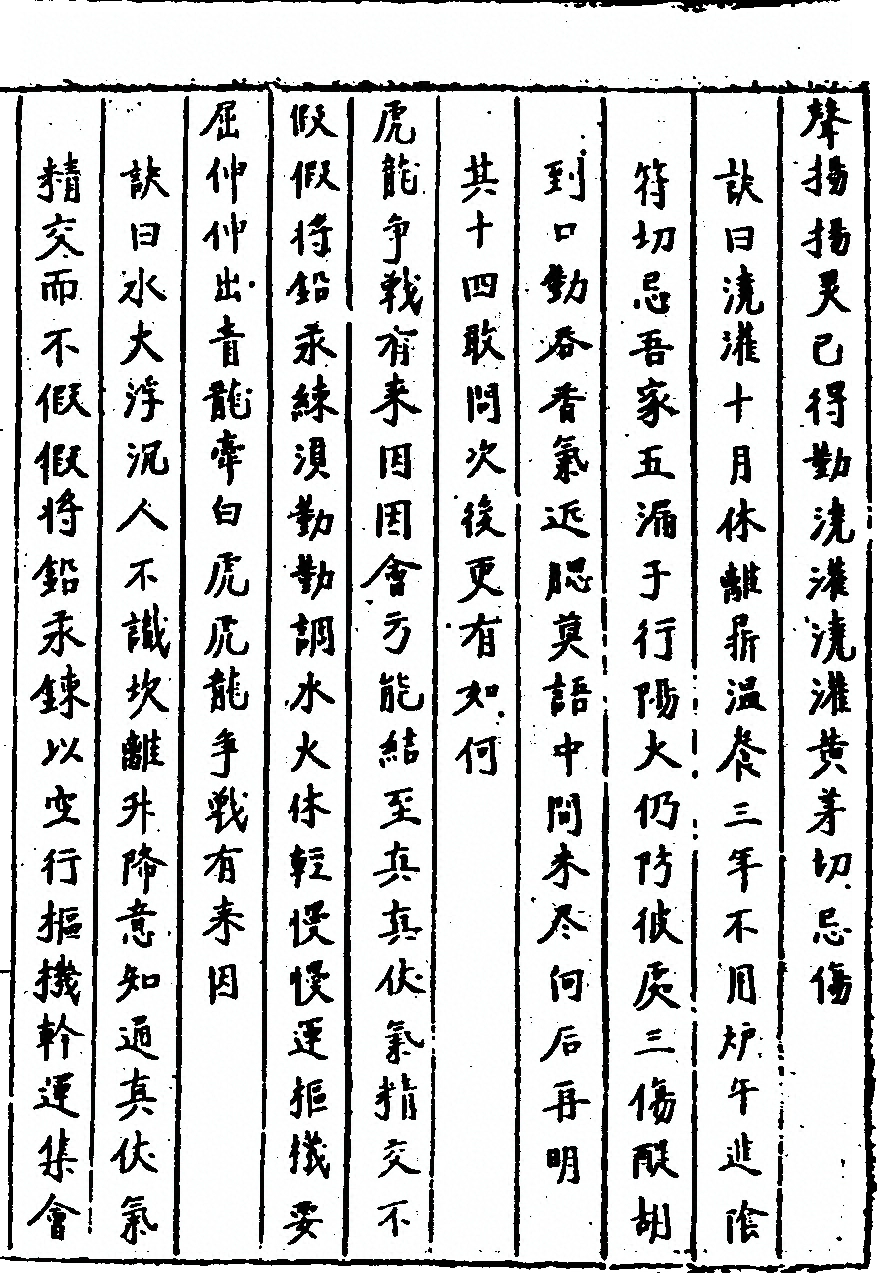 聲揚揚灵已得勤澆灌澆灌黄芽切忌傷
訣曰澆灌十月休離拆温養三年不用炉午進陰
符切忌吾家五漏子行陽火仍防彼処三傷醍胡
到口勤吞香氣近腮莫語中間未尽何后再明
其十四敢問次後更有如何
虎龍争戦有来因因會方能結至真真伏氣精交不
假假将鉛汞練須勤勤調水火休輊慢慢運摳機妥
屈伸伸出青龍牵白虎虎龍争戦有来因
訣曰水火浮沉人不識坎離升降意知通真伏氣
精交而不假假将鉛汞鍊以空行摳機幹運集會